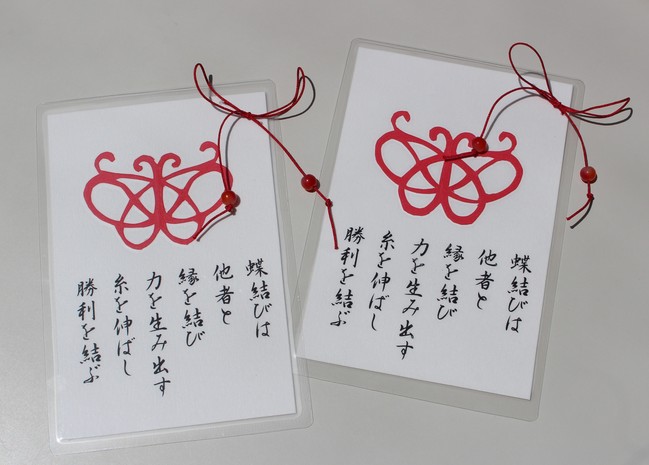 蝶結びは
他者と
縁を結び
力を生み出す
糸を伸ばし
勝利を結ぶ
蝶結びは
他者と
縁を結び
力を生み出す
糸を伸ばし
勝利を結ぶ